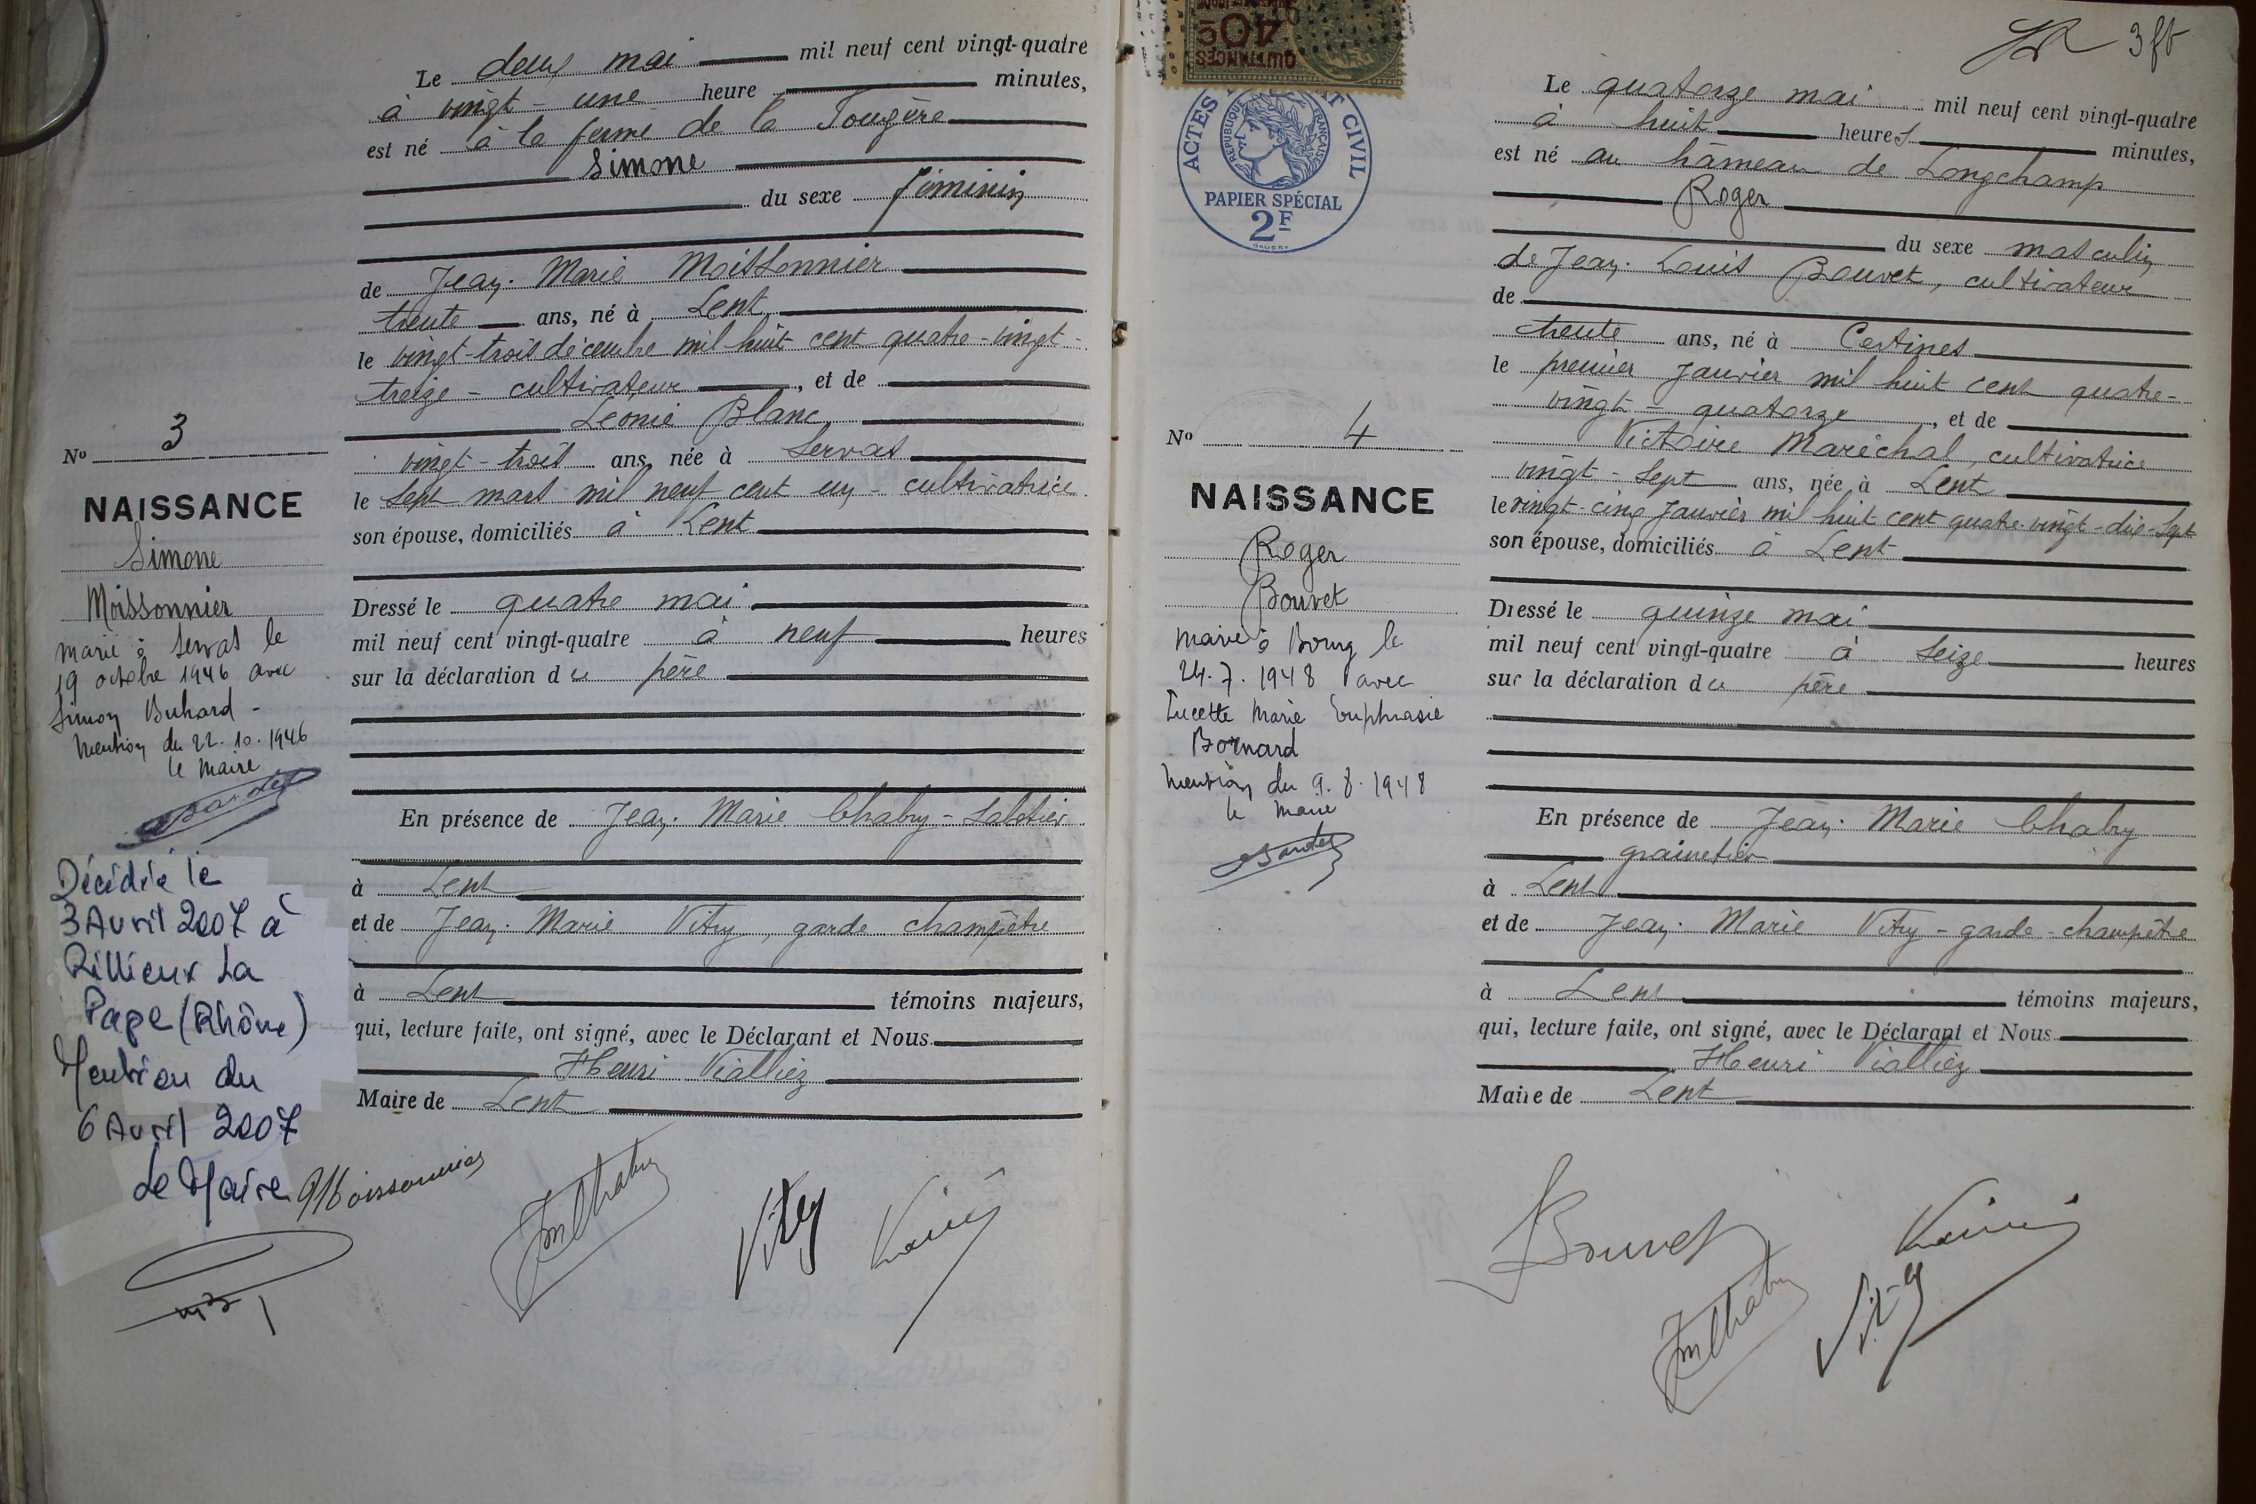 Le deux mai mil neuf cent vingt-quatre
à vingt-une heure minutes,
est né à la ferme de la Fougère
Simone
du sexe féminin
de Jean-Marie Moissonnier
trente ans, né à Lent
le vingt-trois décembre mil huit cent quatre-vingt-
treize - cultivateur, et de
Léonie Blanc
vingt-trois ans, née à Servas
le sept mars mil neuf cent un - cultivatrice
son épouse, domiciliés à Lent
Dressé le quatre mai
mil neuf cent vingt-quatre à neuf heures
sur la déclaration du père
En présence de Jean-Marie Chabry - sabotier
à Lent
et de Jean-Marie Vitry, garde champêtre
à Lent témoins majeurs,
qui, lecture faite, ont signé, avec le Déclarant et Nous
Henri Vialliez
Maire de Lent
No 3
NAISSANCE
Simone
Moissonnier
marié à Servas le
19 octobre 1946 avec
Simon Buhard -
Mention du 22.10.1946
le Maire
Décédée le
3 Avril 2007 à
Rillieux La
Pape (Rhône)
Mention du
6 Avril 2007
Le Maire
Moissonnier
JmChabry
Vitry
3 ft
QUITTANCES
40c
ACTES ET CIVIL
REPUBLIQUE FRANÇAISE
PAPIER SPÉCIAL
2F
Le quatorze mai mil neuf cent vingt-quatre
à huit heures minutes,
est né au hâmeau de Longchamp
Roger
du sexe masculin
de Jean-Louis Bouvet, cultivateur
de
trente ans, né à Certines
le premier Janvier mil huit cent quatre-
vingt-quatorze, et de
Victoire Maréchal, cultivatrice
vingt-sept ans, née à Lent
le vingt-cinq Janvier mil huit cent quatre-vingt-dix-sept
son épouse, domiciliés à Lent
Dressé le quinze mai
mil neuf cent vingt-quatre à seize heures
sur la déclaration du père
En présence de Jean-Marie Chabry
grainetier
à Lent
et de Jean-Marie Vitry - garde-champêtre
à Lent témoins majeurs,
qui, lecture faite, ont signé, avec le Déclarant et Nous
Henri Vialliez
Maire de Lent
No 4
NAISSANCE
Roger
Bouvet
Marié à Bourg le
24.7.1948 avec
Lucette Marie Euphrasie
Bornard
Mention du 9.8.1948
le Maire
Bouvet
JmChabry
Vitry